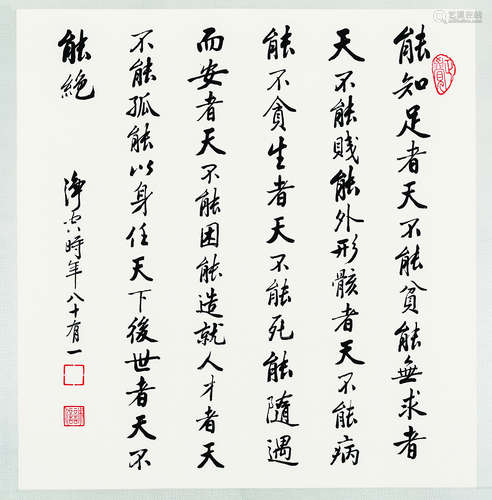 能知足者天不能貧能無求者
天不能賤能外形骸者天不能病
能不貪生者天不能死能隨遇
而安者天不能困能造就人才者天
不能孤能以身任天下後世者天不
能絕
淨空時年八十有一